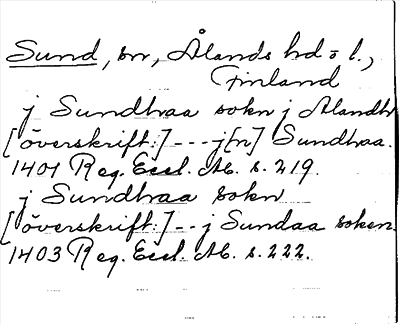 Sund, sn, Ålands hd o l.,
Finland
j Sundhaa sokn j Alandh
[överskrift:] --- j[n] Sundhaa.
1401 Reg. Eccl. Ab. s. 219.
j Sundhaa sokn
[överskrift:] -- j Sundaa soken
1403 Reg. Eccl. Ab. s. 222.